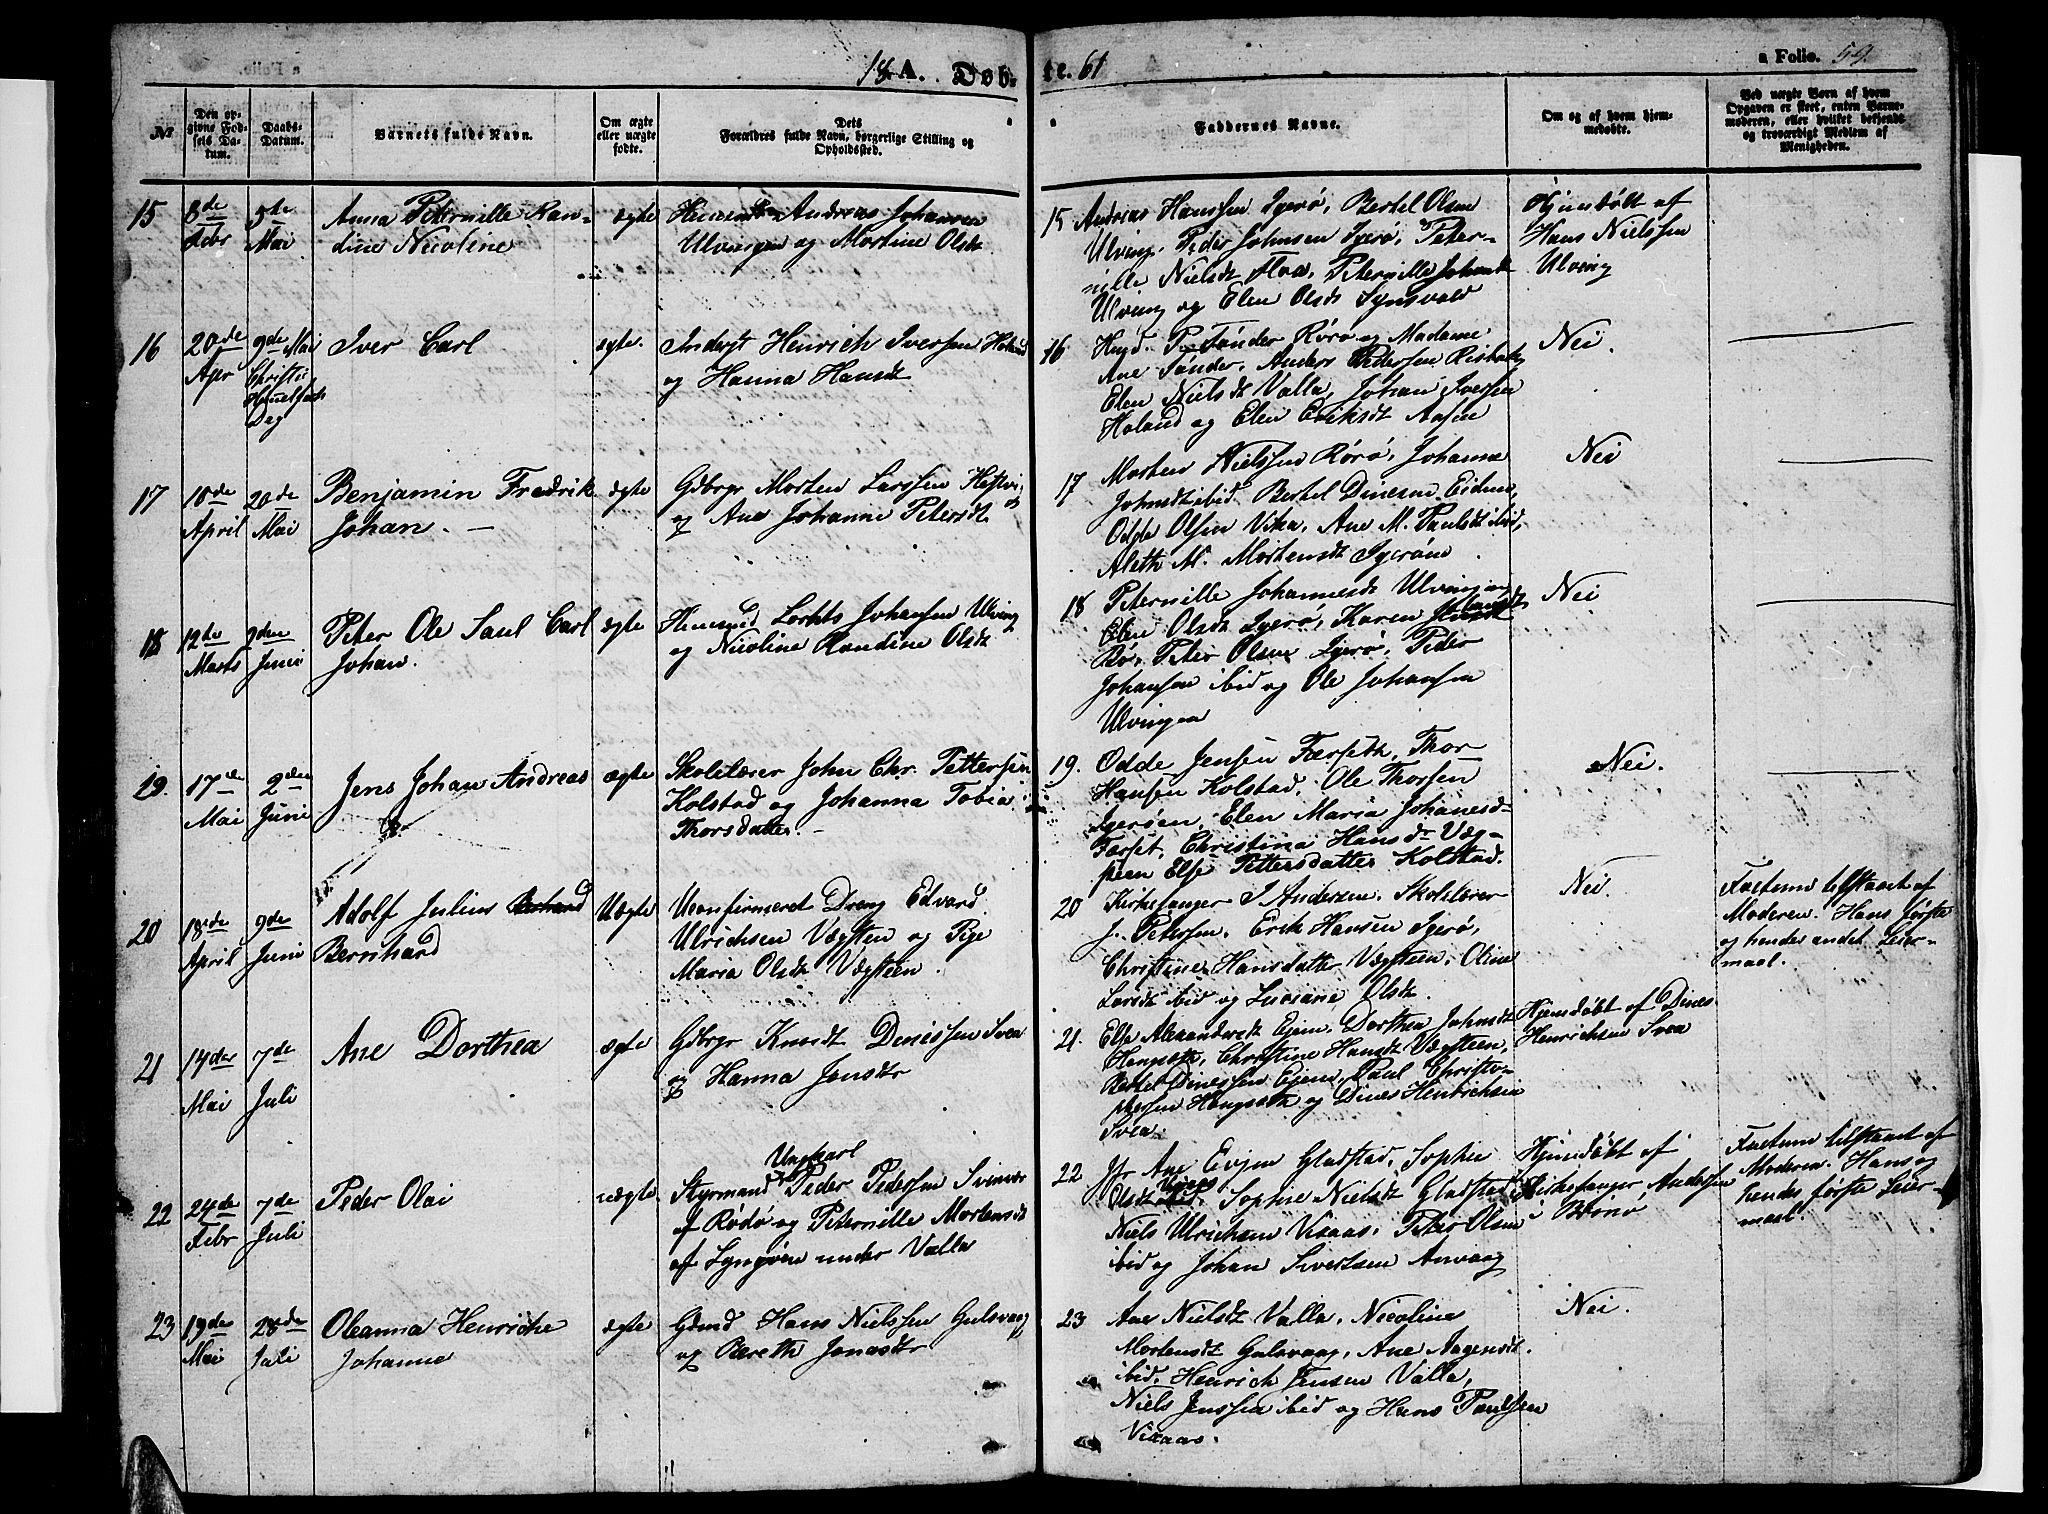 18 A. Døb-
te. 61
a Folio. 59.
№
Den op-
givne Fød-
sels Da-
tum.
Daabs-
Datum.
Barnets fulde Navn.
Om ægte
eller uægte
fødte.
Dets
Forældres fulde Navn, borgerlige Stilling og
Opholdssted.
Faddernes Navne.
Om og af hvem hjem-
medøbte.
Ved uægte Børn af hvem
Opgaven er skeet, enten Barne-
moderen, eller hvilket bekjendt
og troværdigt Medlem af
Menigheden.
15
8de
Febr
5te
Mai
Anna Peternille Ran-
dine Nicoline
ægte
Andreas Johansen
Ulvingen og Martine Olsdt
15 Andreas Hanssen Igerø, Bertel Olsen
Ulving, Peder Johnsen Igerø, Peter-
nille Nielsdt Floa, Peternille Johansdt
Ulving og Elen Olsdt
Hjemdøbt af
Hans Nielssen
Ulving
16
20de
Apr
9de Mai
Christi
Himmelfarts
Dag
Iver Carl
ægte.
Inderst Henrich Iversen Holand
og Hanna Hansdt
16 P. Tønder Rørø og Madame
Ane Tønder, Anders Pedersen
Elen Nielsdt Valla, Johan Iversen
Holand og Elen Eriksdt Aasen
Nei.
17
10de
April
20de
Mai
Benjamin Fredrik
Johan. —
ægte
Gdbrgr Morten Larssen
og Ane Johanne Petersdt
17 Morten Nielssen Rørø, Johanna
Johnsdt ibid. Bertel Dinesen Eidem,
Odde Olsen Vika, Ane M. Paulsdt ibid,
Aleth M. Mortensdt Igerøen
Nei
18
12te
Marts
2den
Juni
Peter Ole Paul Carl
Johan.
ægte
Johansen Ulving
og Nicoline Randine Olsdt
18 Peternille Johannesdt Ulvingen
Elen Olsdt Igerø, Karen
Rø, Peter Olsen Igerø, Peder
Johansen ibid og Ole Johansen
Ulvingen
Nei
19.
17de
Mai
2den
Juni
Jens Johan Andreas
ægte
Skolelærer John Chr. Pettersen
Kolstad og Johanna Tobia
Thorsdatter. —
19. Odde Jensen Færseth, Thor
Hansen Kolstad, Ole Thorsen
Igerøen, Elen Maria Johanesd-
Færset, Christina Hansdr Væg-
steen Else Pettersdatter Kolstad.
Nei.
20
18de
April
9de
Juni
Adolf Julius
Bernhard
Uægte
Uconfirmeret Dreng Edvard
Ulrichsen Vægsten og Pige
Maria Olsdt Vægsteen.
20 Kirkesanger I. Andersen. Skolelærer
J. Petersen. Erik Hansen Igerø,
Christine Hansdatter Vægsteen, Oline
Larsdt ibid og Luciane Olsdt.
Nei.
Factum tilstaaet af
Moderen. Hans første
og hendes andet Leier-
maal.
21
14des
Mai
7de
Juli
Ane Dorthea
ægte
Gdbrgr Knudt Dinessen Svea
og Hanna Jensdtr
21. Else Alexandersdt Ejem. Dorthea Johnsdt
Hongseth, Christine Hansdt Vægsteen,
Bertel Dinessen Ejem, Paul Christo-
phersen Hongseth og Dines Henrichsen
Svea.
Hjemdøbt af Dines
Henrichsen Svea
22
24de
Febr
7de
Juli
Peder Olai
uægte.
Ungkarl
Styrmand Peder Pedersen Svinvær
af Rødø og Peternille Mortensdt
af Lyngøen under Valla
22 Jfr Ane Evjen Gladstad, Sophie
Olsdt ibid, Sophie Nielsdt Gladstad
Niels Ulrichsen Vixaas, Peter Olsen
ibid og Johan Sivertsen Anvaag
Hjemdøbt af
Kirkesanger Andersen
i Brønø
Factum tilstaaet af
Moderen. Hans og
hendes første Leier-
maal.
23
19des
Mai
28de
Juli
Oleanna Henrikke
Johanna
ægte
Gdmd Hans Nielssen Gulsvaag
og Bereth Jonasdtr
23 Ane Nielsdt Valla, Nicoline
Mortensdt Gulsvaag, Ane Aagensdt
ibid, Henrich Jensen Valla,
Niels Jenssen ibid og Hans Paulsen
Vixaas.
Nei.